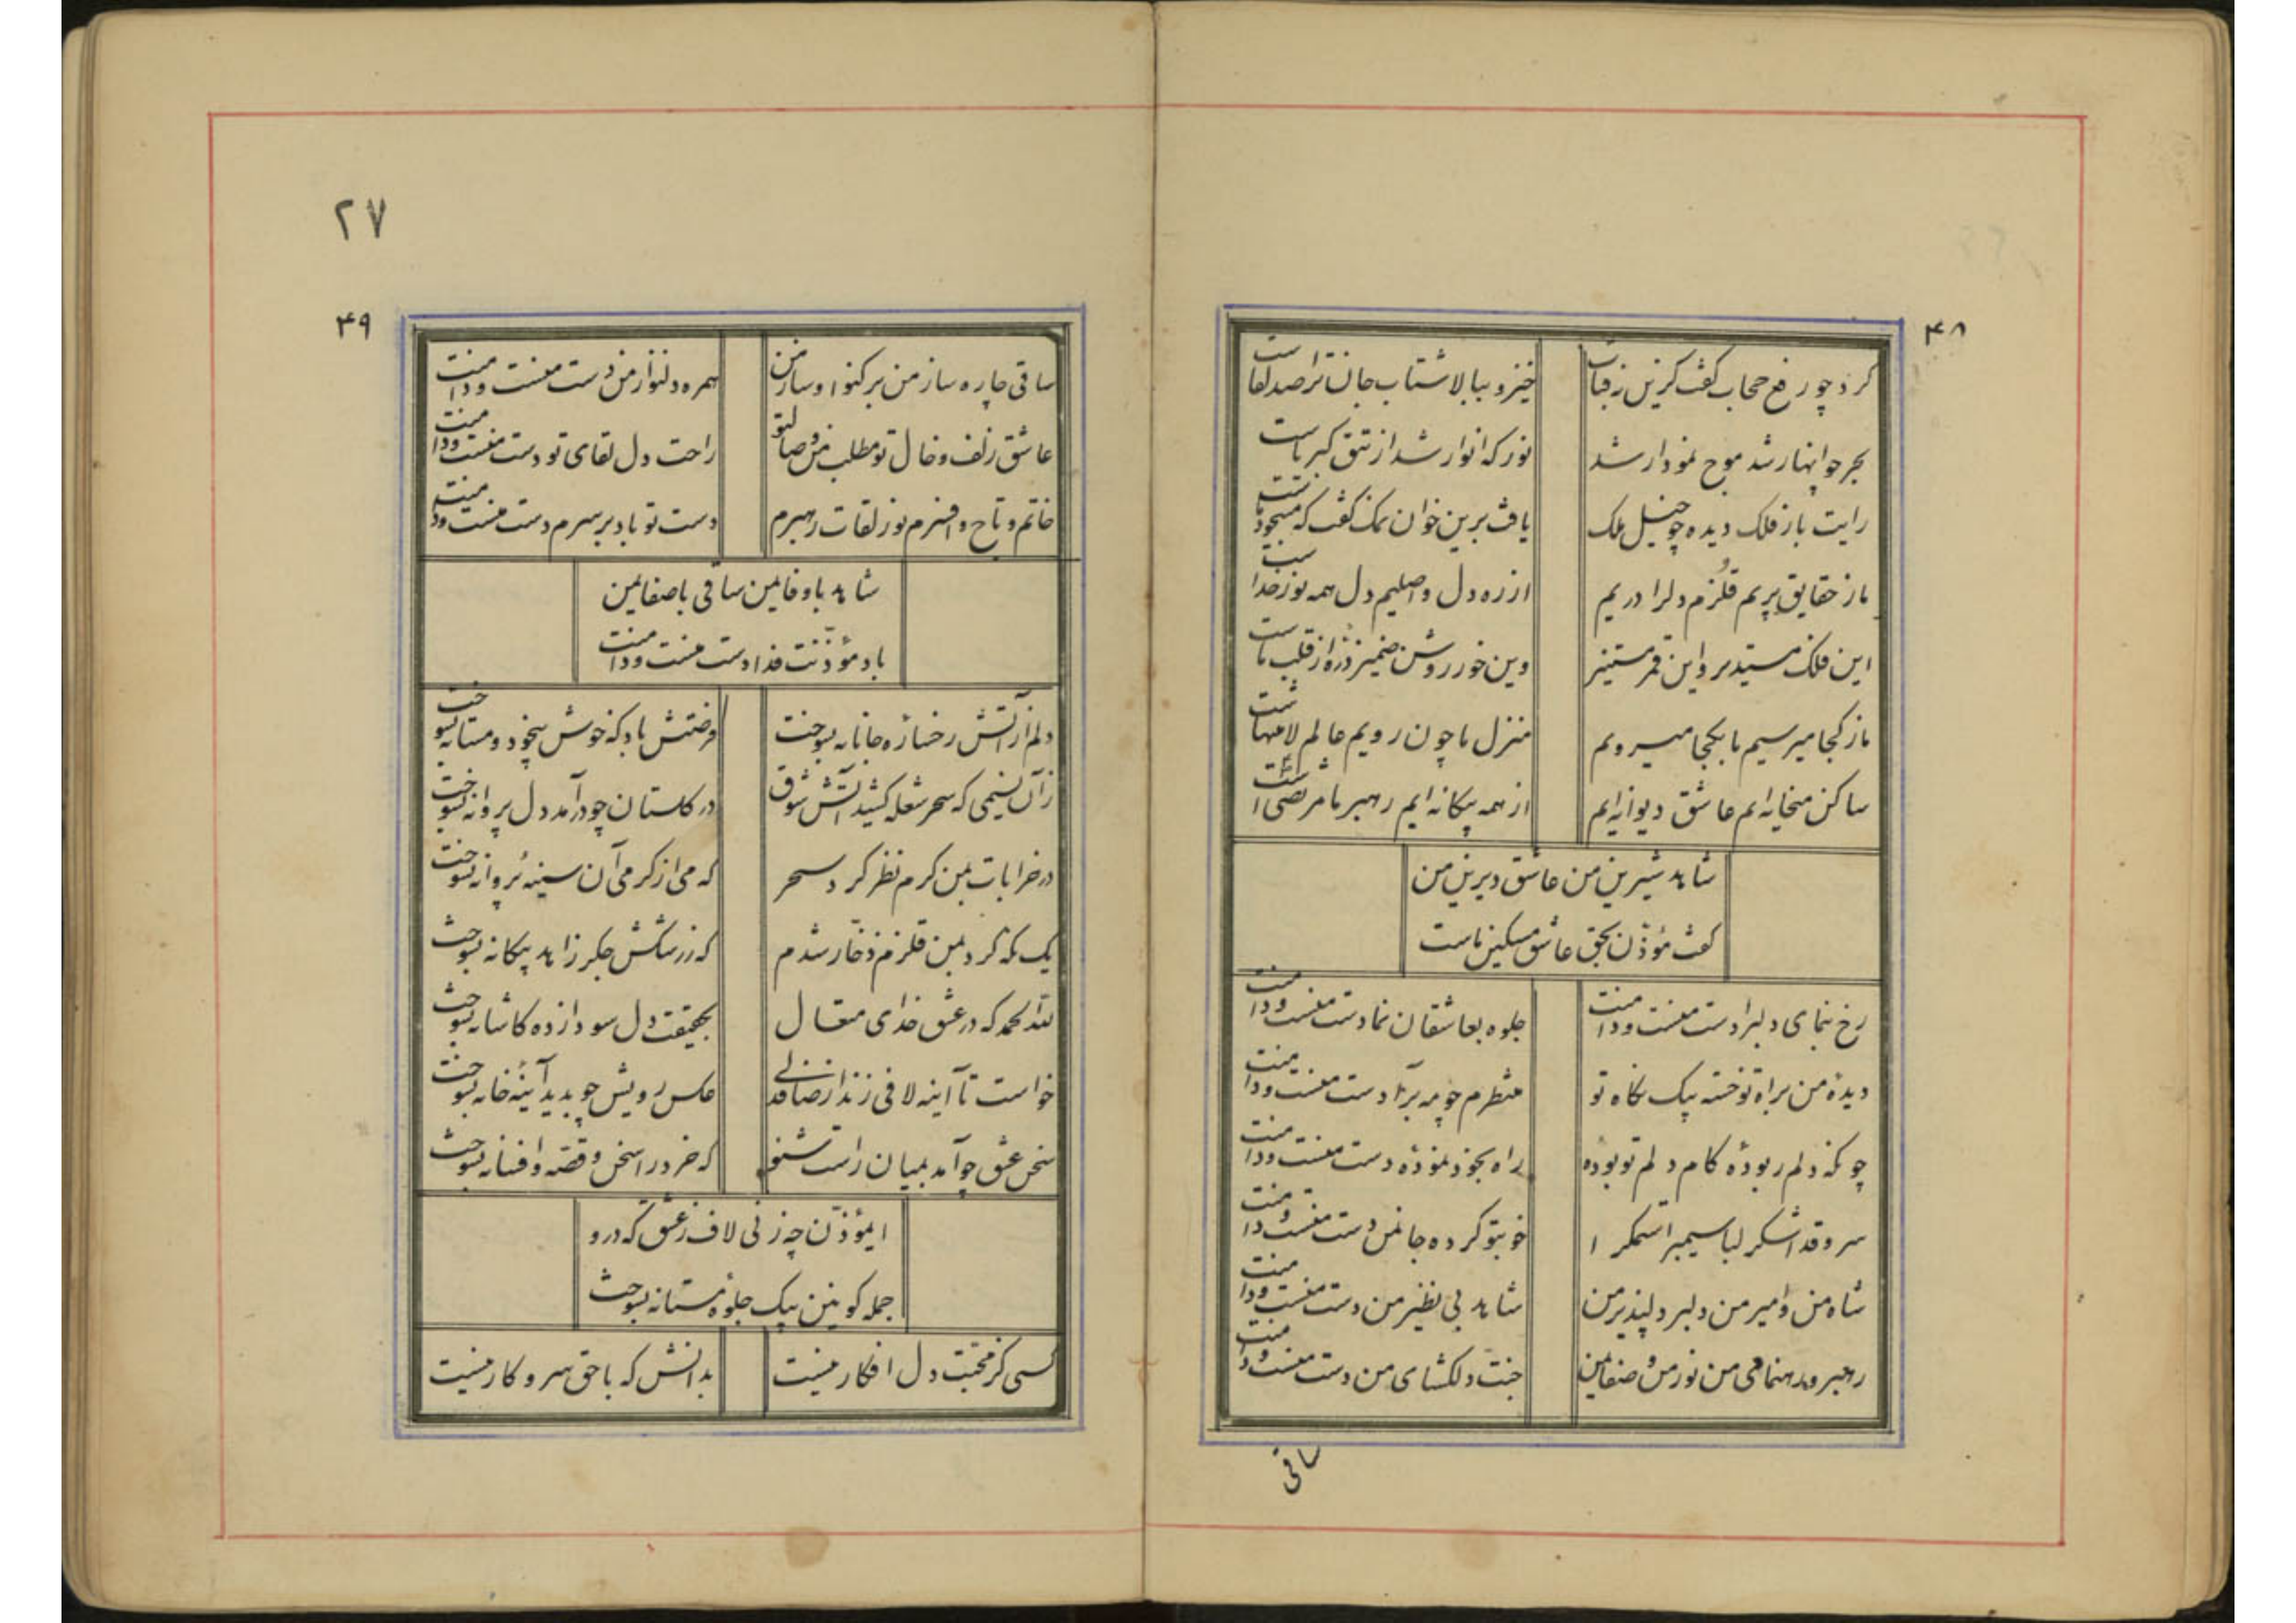 ۴۸
کرد چو رفع حجاب گفت کزین
خیز و بیا با شتاب جانت ترا صد لقاست
بحر چو انهار شد موج نمودار شد
نور که انوار شد از تتق کبریاست
رایت باز فلک دیده چو خیل ملک
یافت برین خوان نمک گفت که
ما ز حقایق پریم قلزم دل را دریم
از ره دل و اصلیم دل همه نور خداست
این فلک مستدیر و این قمر مستنیر
وین خور روشن ضمیر ذره‌ از قلب ماست
ما ز کجا میرسیم ما بکجا میرویم
منزل ما چون رویم عالم لا منتهاست
ساکن میخانه ایم عاشق دیوانه ایم
از همه بیگانه ایم رهبر ما مرتضی است
شاهد شیرین من عاشق دیرین من
گفت مؤذن بحق عاشق مسکین ماست
رخ بنمای دلبرا دست منست و دامنت
جلوه بعاشقان نما دست منست و دامنت
دیدهٔ من براه تو خسته بیک نگاه تو
منتظرم چو مه برآ دست منست و دامنت
چونکه دلم ربودهٔ کام دلم تو بوده
راه بخود نمودهٔ دست منست و دامنت
سرو قدا شکر لبا سیمبرا ستمگرا
خو بتو کرده جان من دست منست و دامنت
شاه من و امیر من دلبر دلپذیر من
شاهد بی نظیر من دست منست و دامنت
رهبر و رهنمای من نور من و صفای من
جنت دلگشای من دست منست و دامنت
ساقی
۲۷
۴۹
ساقی چاره ساز من برکنوا و ساز من
همره دلنواز من دست منست و دامنت
عاشق زلف و خال تو مطلب من وصال تو
راحت دل لقای تو دست منست و دامنت
خاتم و تاج و افسرم نور لقات رهبرم
دست تو باد بر سرم دست منست و دامنت
شاهد با وفای من ساقی با صفای من
باد مؤذنت فدا دست منست و دامنت
دلم از آتش رخسارهٔ جانانه بسوخت
فرصتش باد که خوش بیخود و مستانه بسوخت
زآن نسیمی که سحر شعله کشید آتش شوق
در گلستان چو درآمد دل پروانه بسوخت
در خرابات بمن کرم نظر کرد سحر
که می از گرمی آن سینه پروانه بسوخت
یک نگه کرد بمن قلزم ذخار شدم
که ز رشکش جگر زاهد بیگانه بسوخت
لله الحمد که در عشق خدای متعال
بحقیقت دل سودازده کاشانه بسوخت
خواست تا آینه لافی زند از صافدلی
عکس رویش چو بدید آینه‌خانه بسوخت
سخن عشق چو آمد بمیان راست شنو
که خرد را سخن و قصه و افسانه بسوخت
ایمؤذن چه زنی لاف ز عشق که درو
جمله کونین بیک جلوهٔ مستانه بسوخت
کسی کز محبت دل افکار نیست
بدانش که با حق سر و کار نیست